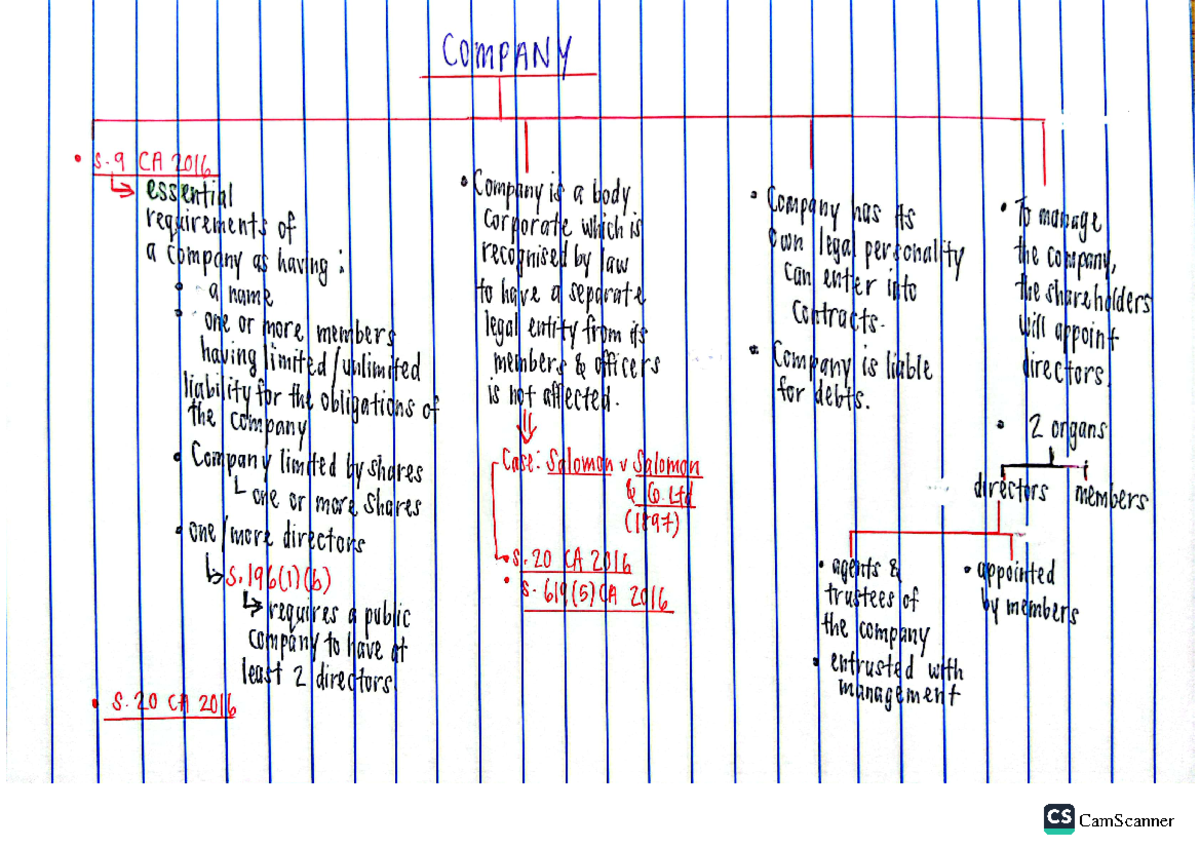 COMPANY
• S. 9 CA 2016
↳ essential
requirements of
a company as having :
• a name
• one or more members
having limited/unlimited
liability for the obligations of
the company
• Company limited by shares
└ one or more shares
• one/more directors
↳ S.196(1)(b)
↳ requires a public
company to have at
least 2 directors
• S. 20 CA 2016
• Company is a body
corporate which is
recognised by law
to have a separate
legal entity from its
members & officers
is not affected.
⇓
Case: Salomon v Salomon
& Co. Ltd
(1897)
• S. 20 CA 2016
• S. 619(5) CA 2016
• Company has its
own legal personality
can enter into
contracts.
• Company is liable
for debts.
• To manage
the company,
the shareholders
will appoint
directors.
• 2 organs
directors members
• agents &
trustees of
the company
• entrusted with
management
• appointed
by members
CS CamScanner